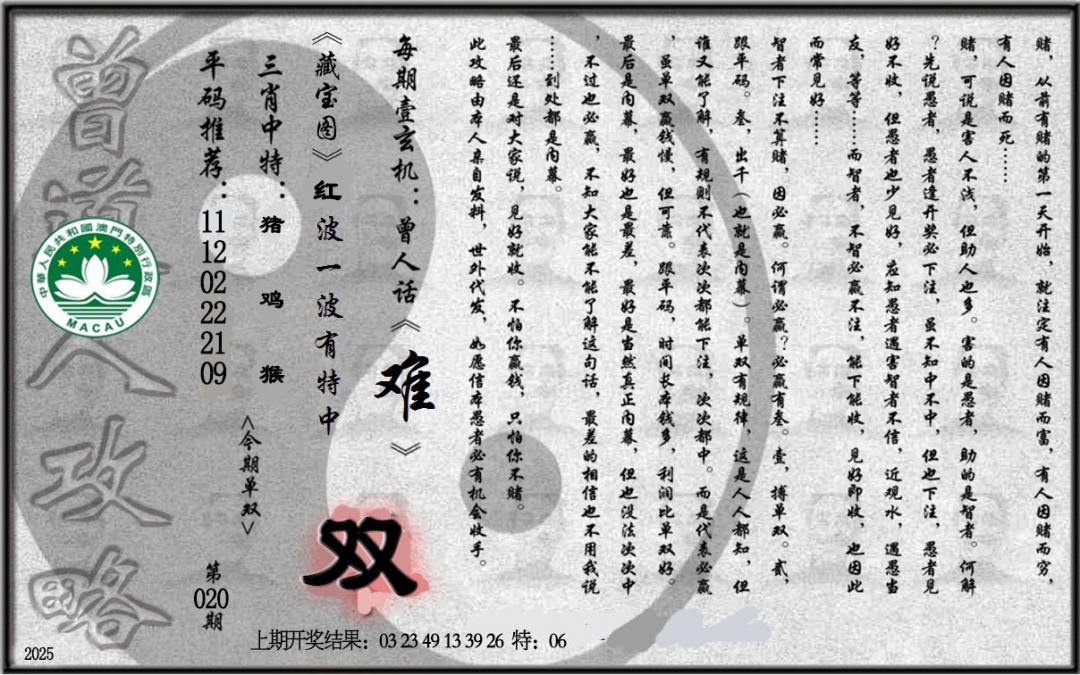 赌，从前有赌的第一天开始，就注定有人因赌而富，有人因赌而穷，
有人因赌而死……
赌，可说是害人不浅，但助人也多。害的是愚者，助的是智者。何解
？先说愚者，愚者逢开奖必下注，虽不知中不中，但也下注，愚者见
好不收，但愚者也少见好，应知愚者遇害智者不信，近观水，遇愚当
友，等等……而智者，不智必赢不注，能下能收，见好即收，也因此
而常见好……
智者下注不算赌，因必赢。何谓必赢？必赢有叁。壹，搏单双。贰，
跟平码。叁，出千（也就是内幕）。单双有规律，这是人人都知，但
谁又能了解，有规则不代表次次都能下注，次次都中。而是代表必赢
，虽单双赢钱慢，但可靠。跟平码，时间长本钱多，利润比单双好。
最后是内幕，最好也是最差，最好是当然真正内幕，但也没法次次中
，不过也必赢，不知大家能不能了解这句话，最差的相信也不用我说
……到处都是内幕。
最后还是对大家说，见好就收。不怕你赢钱，只怕你不赌。
此攻略由本人亲自发料，世外代发，如愿信本愚者必有机会收手。
每期壹玄机：曾人话《难》
《藏宝图》红波一波有特中
双
三肖中特：猪 鸡 猴
<今期单双>
平码推荐：11 12 02 22 21 09
第020期
曾道人攻略
中華人民共和國澳門特別行政區
MACAU
上期开奖结果：03 23 49 13 39 26 特：06
2025